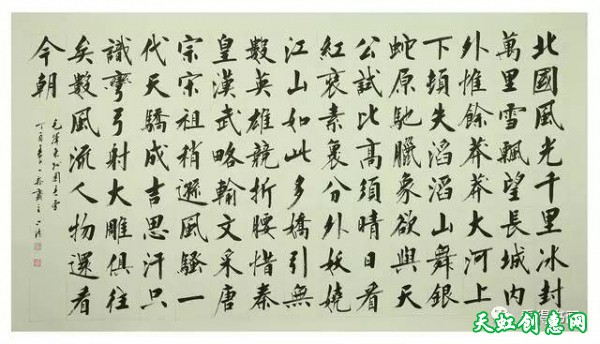 北國風光千里冰封
萬里雪飄望長城内
外惟餘莽莽大河上
下頓失滔滔山舞銀
蛇原馳臘象欲與天
公試比高須晴日看
紅裝素裹分外妖嬈
江山如此多嬌引無
數英雄競折腰惜秦
皇漢武略輸文采唐
宗宋祖稍遜風騷一
代天驕成吉思汗只
識彎弓射大雕俱往
矣數風流人物還看
今朝
毛澤東沁園春雪
丁酉春
天虹创意网